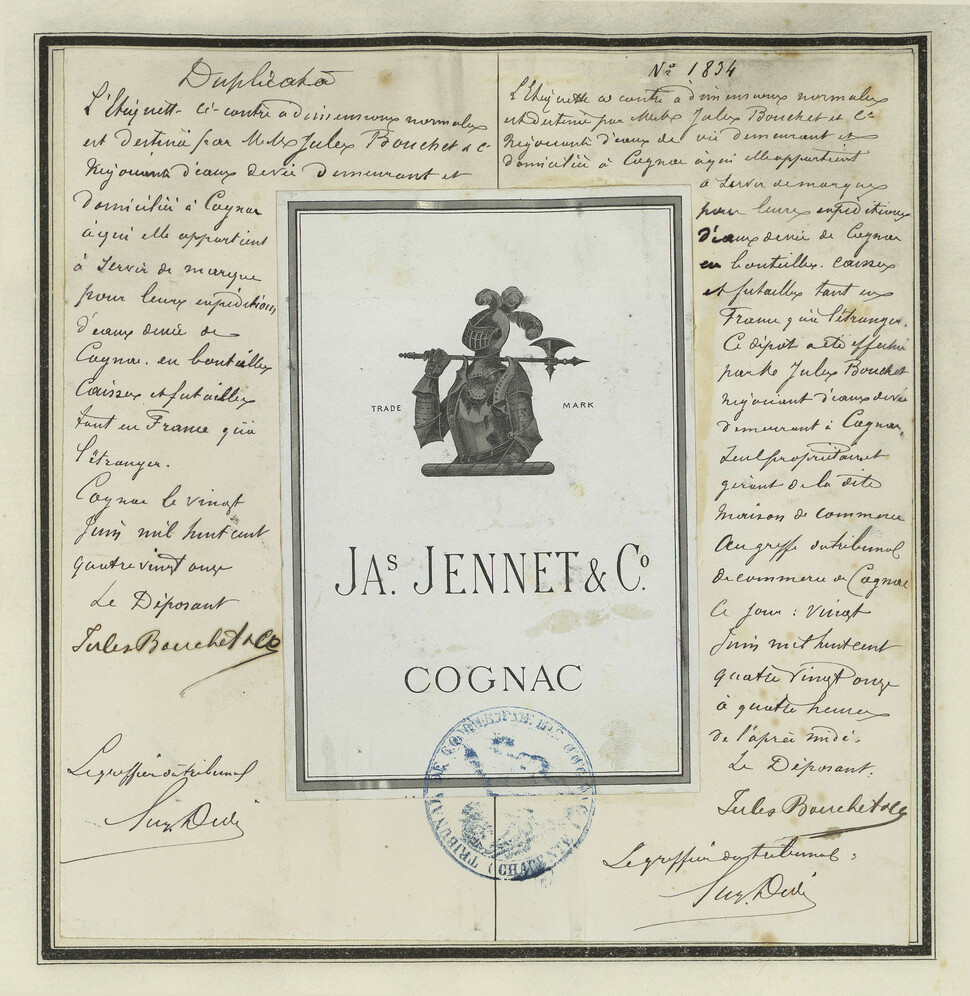 Duplicata
L'Etiquette ci-contre a dimensions normales
est destinée par MM. Jules Bouchet & Cie
Négociants d'eaux de vie demeurant et
domiciliés à Cognac
à qui elle appartient
à servir de marque
pour leurs expéditions
d'eaux de vie de
Cognac. en bouteilles
Caisses et futailles
tant en France qu'à
l'étranger.
Cognac le vingt
Juin mil huit cent
quatre vingt onze
Le Déposant
Jules Bouchet & Co
Le greffier du tribunal
No 1834
L'Etiquette ci contre a dimensions normales
est destinée par MM. Jules Bouchet et Cie
Négociants d'eaux de vie demeurant et
domiciliés à Cognac à qui elle appartient
à servir de marque
pour leurs expéditions
d'eaux de vie de Cognac
en bouteilles. caisses
et futailles tant en
France qu'à l'étranger.
Ce dépôt a été effectué
par Mr Jules Bouchet
négociant d'eaux de vie
demeurant à Cognac,
seul propriétaire et
gérant de la dite
maison de commerce
Au greffe du tribunal
de commerce de Cognac
Ce jour : vingt
Juin mil huit cent
quatre vingt onze
à quatre heures
de l'après midi.
Le Déposant.
Jules Bouchet & Co
Le greffier du tribunal :
TRADE MARK
JAS. JENNET & Co.
COGNAC
TRIBUNAL DE COMMERCE DE COGNAC
(CHARENTE)